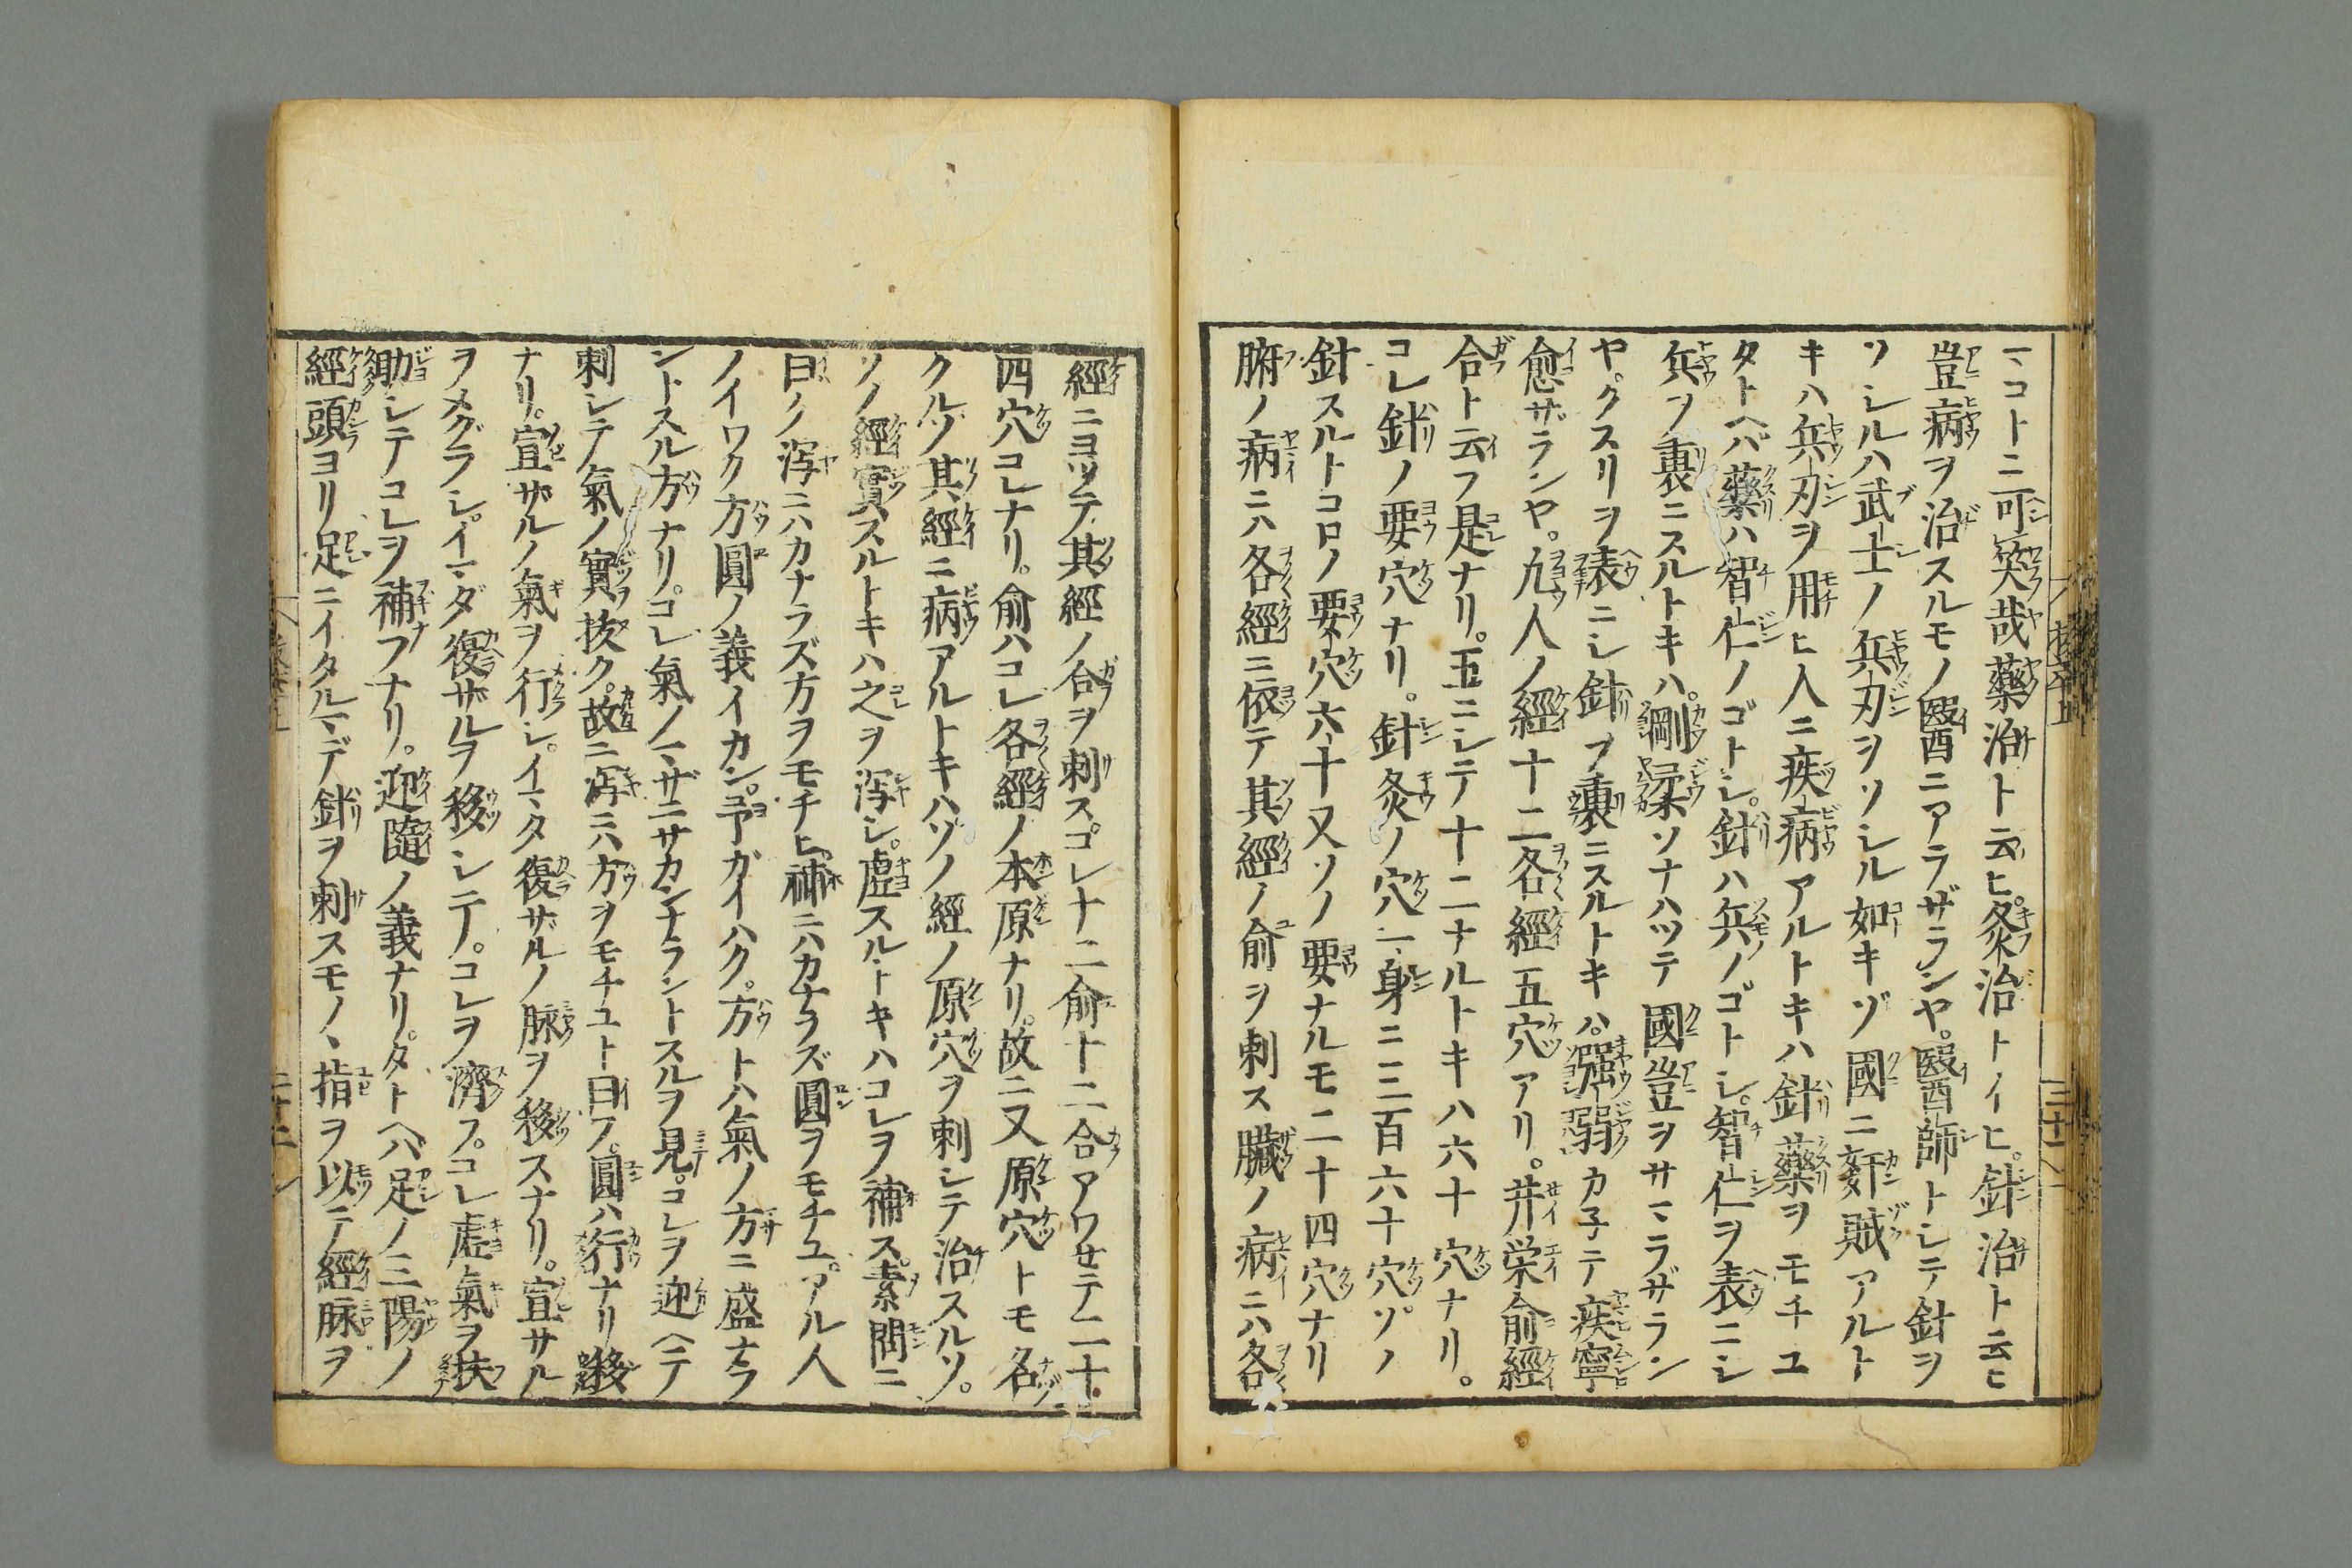 マコトニ可笑哉藥治ト云ヒ灸治トイヒ。針治ト云ヒ
豈病ヲ治スルモノ醫ニアラザランヤ。醫師トシテ針ヲ
ソシルハ武士ノ兵刃ヲソシル如キゾ國ニ奸賊アルト
キハ兵刃ヲ用ヒ人ニ疾病アルトキハ針藥ヲモチユ
タトヘバ藥ハ智仁ノゴトシ。針ハ兵ノゴトシ。智仁ヲ表ニシ
兵ヲ裏ニスルトキハ。剛柔ソナハツテ國豈ヲサマラザラン
ヤ。クスリヲ表ニシ針ヲ裏ニスルトキハ。强弱カ子テ疾寧
愈ザランヤ。九人ノ經十二各經五穴アリ。井栄俞經
合ト云フ是ナリ。五ニシテ十二ナルトキハ六十穴ナリ。
コレ針ノ要穴ナリ。針灸ノ穴一身ニ三百六十穴。ソノ
針スルトコロノ要穴六十又ソノ要ナルモ二十四穴ナリ
腑ノ病ニハ各經ニ依テ其經ノ俞ヲ刺ス臓ノ病ニハ各
二十一
經ニヨツテ其經ノ合ヲ刺スコレ十二俞十二合アワセテ二十
四穴コレナリ。俞ハコレ各經ノ本原ナリ。故ニ又原穴トモ名
クルソ其經ニ病アルトキハソノ經ノ原穴ヲ刺シテ治スルソ。
ソノ經實スルトキハ之ヲ瀉シ。虛スルトキハコレヲ補ス。素問ニ
曰ク瀉ニハカナラズ方ヲモチヒ。補ニハカナラズ圓ヲモチユ。アル人
ノイワク方圓ノ義イカン。予ガイハク。方トハ氣ノ方ニ盛ナラ
ントスル方ナリ。コレ氣ノマザニサカンナラントスルヲ見。コレヲ迎ヘテ
刺シテ氣ノ實ヲ抜ク。故ニ瀉ニハ方ヲモチユト曰フ。圓ハ行ナリ移
ナリ。宣ザルノ氣ヲ行シ。イマタ復ザルノ脉ヲ移スナリ。宣サル
ヲメグラシ。イマダ復ザルヲ移シニテ。コレヲ濟フ。コレ虛氣ヲ扶
助シテコレヲ補フナリ。迎隨ノ義ナリ。タトヘバ足ノ三陽ノ
經頭ヨリ足ニイタルマデ針ヲ刺スモノヽ指ヲ以テ經脉ヲ
二十二